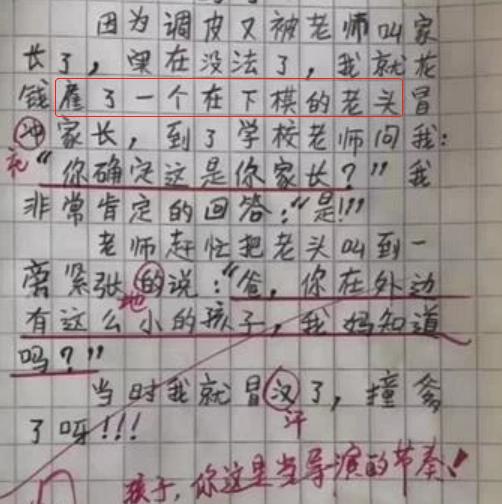 因为调皮又被老师叫家
长了，実在没法了，我就花
钱雇了一个在下棋的老头冒
冲家长，到了学校老师问我：
充
“你确定这是你家长？”我
非常肯定的回答：“是!!!”
老师赶忙把老头叫到一
旁紧张的说：“爸，你在外边
地
有这么小的孩子，我妈知道
吗？”
当时我就冒汉了，撞爹
汗
了呀!!!
孩子，你这是当导演的节奏！